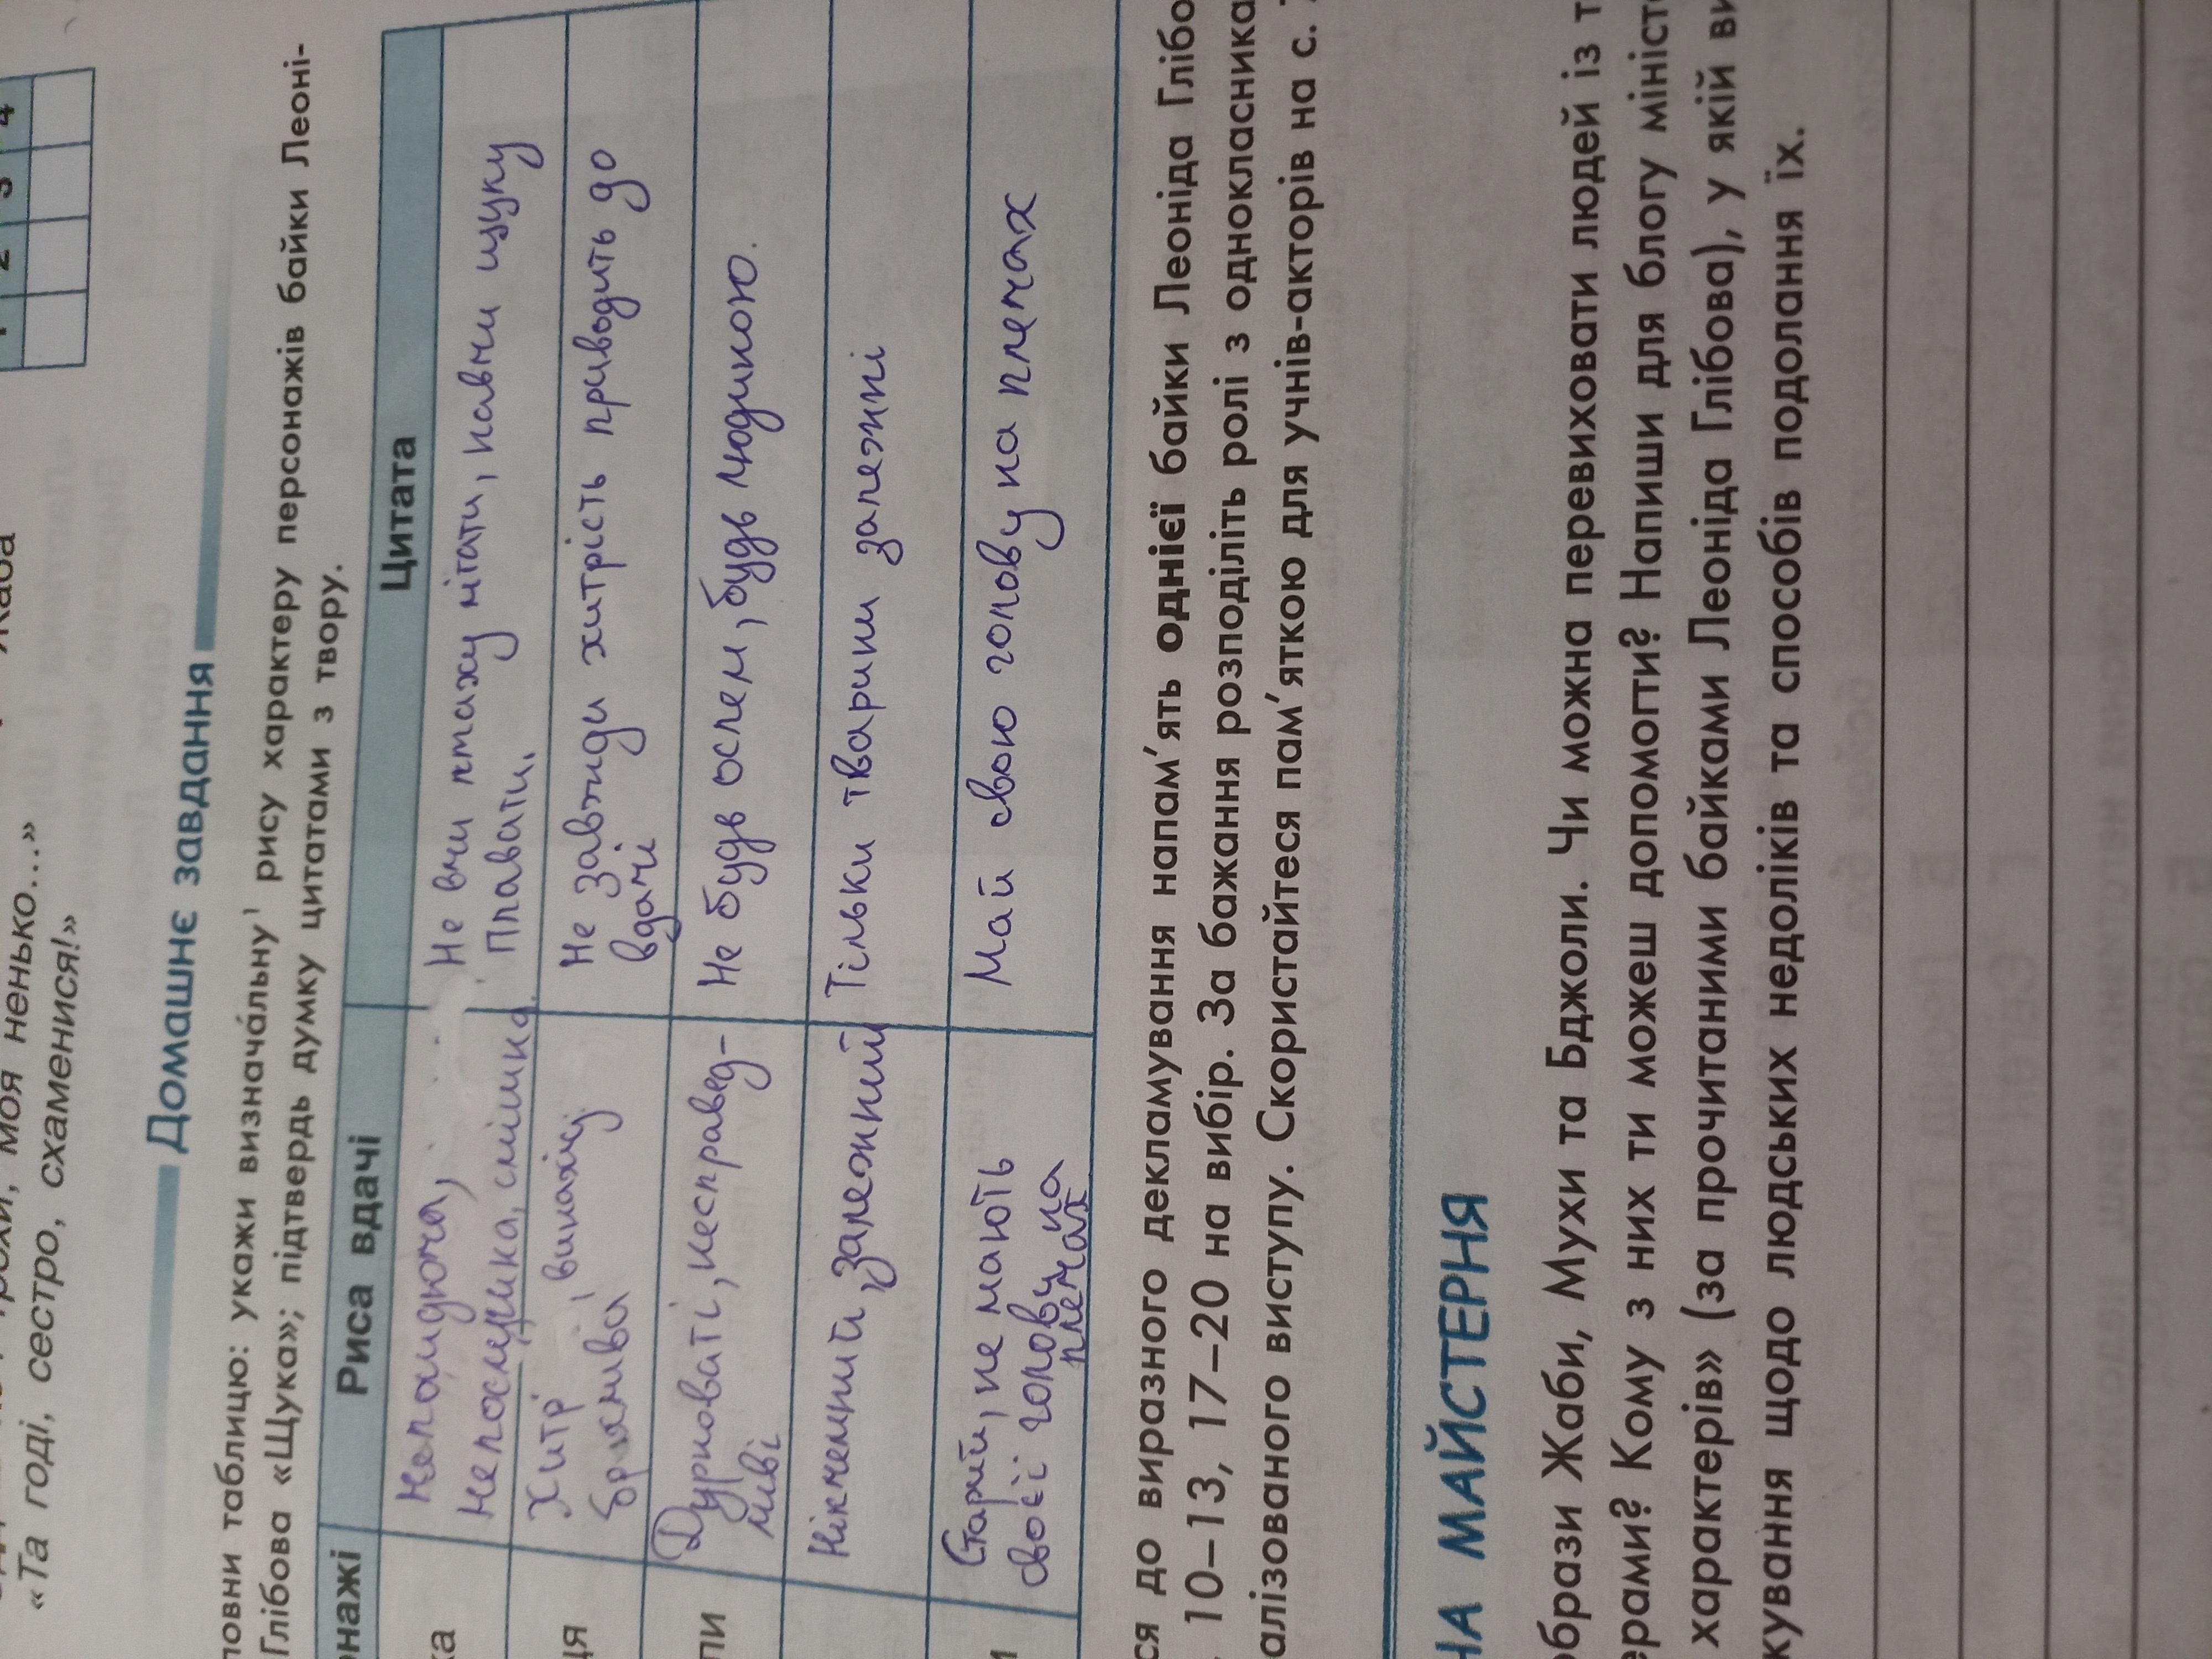 2 3 4
моя ненько...»
«Та годі, сестро, схаменися!»
Домашнє завдання
повни таблицю: укажи визнача́льну¹ рису характеру персонажів байки Леоні-
Глібова «Щука»; підтвердь думку цитатами з твору.
онажі Риса вдачі Цитата
ка
Непосидюча,
непослушна, смішна
Не вчи птаху літати, навчи щуку
плавати.
ця
Хитрі
брехливі
Не завжди хитрість приводить до
вдачі
ли
Дурноваті, несправед-
ливі
Не будь ослем, будь людиною.
Нікчемний, залежний
Тільки тварини залежні
и
Старий, не мають
своєї голови на
плечах
Май свою голову на плечах
ся до виразного декламування напам’ять однієї байки Леоніда Глібо
10–13, 17–20 на вибір. За бажання розподіліть ролі з однокласника
алізованого виступу. Скористайтеся пам’яткою для учнів-акторів на с.
НА МАЙСТЕРНЯ
брази Жаби, Мухи та Бджоли. Чи можна перевиховати людей із т
ерами? Кому з них ти можеш допомогти? Напиши для блогу міністе
характерів» (за прочитаними байками Леоніда Глібова), у якій ви
кування щодо людських недоліків та способів подолання їх.